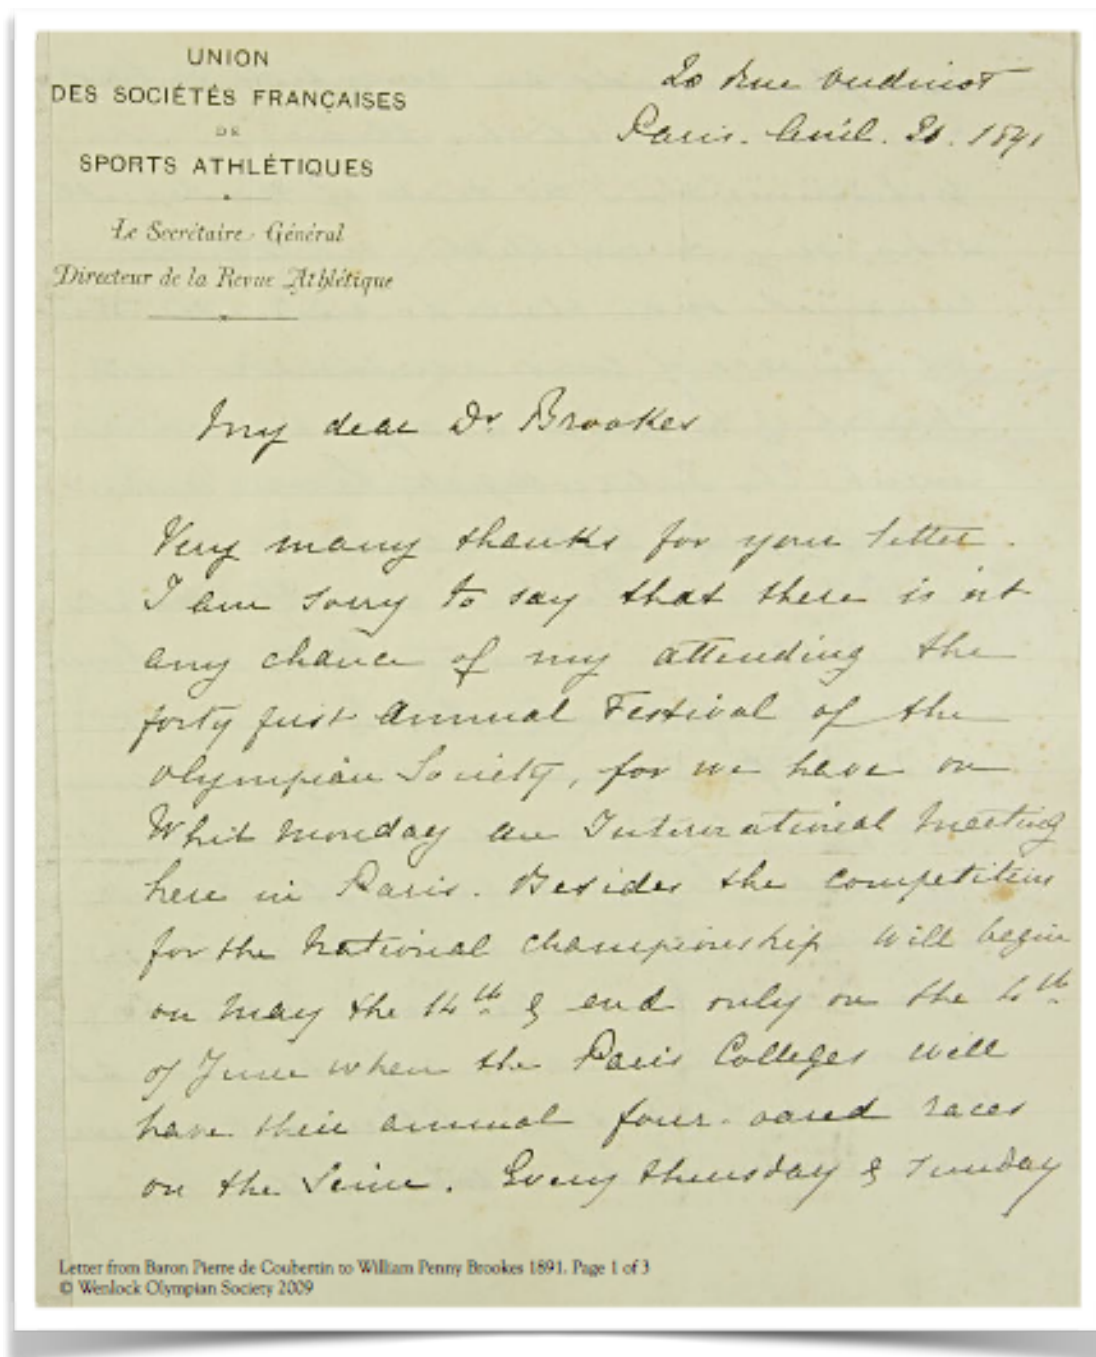 UNION
DES SOCIÉTÉS FRANÇAISES
DE
SPORTS ATHLÉTIQUES
Le Secrétaire-Général
Directeur de la Revue Athlétique
20 Rue Oudinot
Paris. Avril. 20. 1891
My dear Dr. Brookes
Very many thanks for your letter.
I am sorry to say that there is not
any chance of my attending the
forty first Annual Festival of the
Olympian Society, for we have on
Whit Monday an International Meeting
here in Paris. Besides the competitions
for the National championship will begin
on May the 14th & end only on the 4th
of June when the Paris Colleges will
have their annual four-oared races
on the Seine. Every Thursday & Sunday
Letter from Baron Pierre de Coubertin to William Penny Brookes 1891. Page 1 of 3
© Wenlock Olympian Society 2009